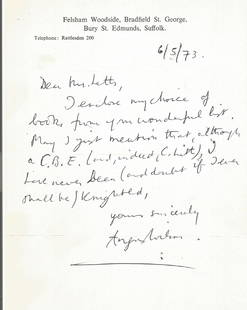 Felsham Woodside, Bradfield St. George,
Bury St. Edmunds, Suffolk.
Telephone: Rattlesden 200
6/5/73.
Dear Mr. Letts,
I enclose my choice of
books from your wonderful list.
May I just mention that, although
a C.B.E. (and, indeed, C.Litt), I
have never been (and doubt if I ever
shall be) Knighted,
yours sincerely
Angus Wilson.